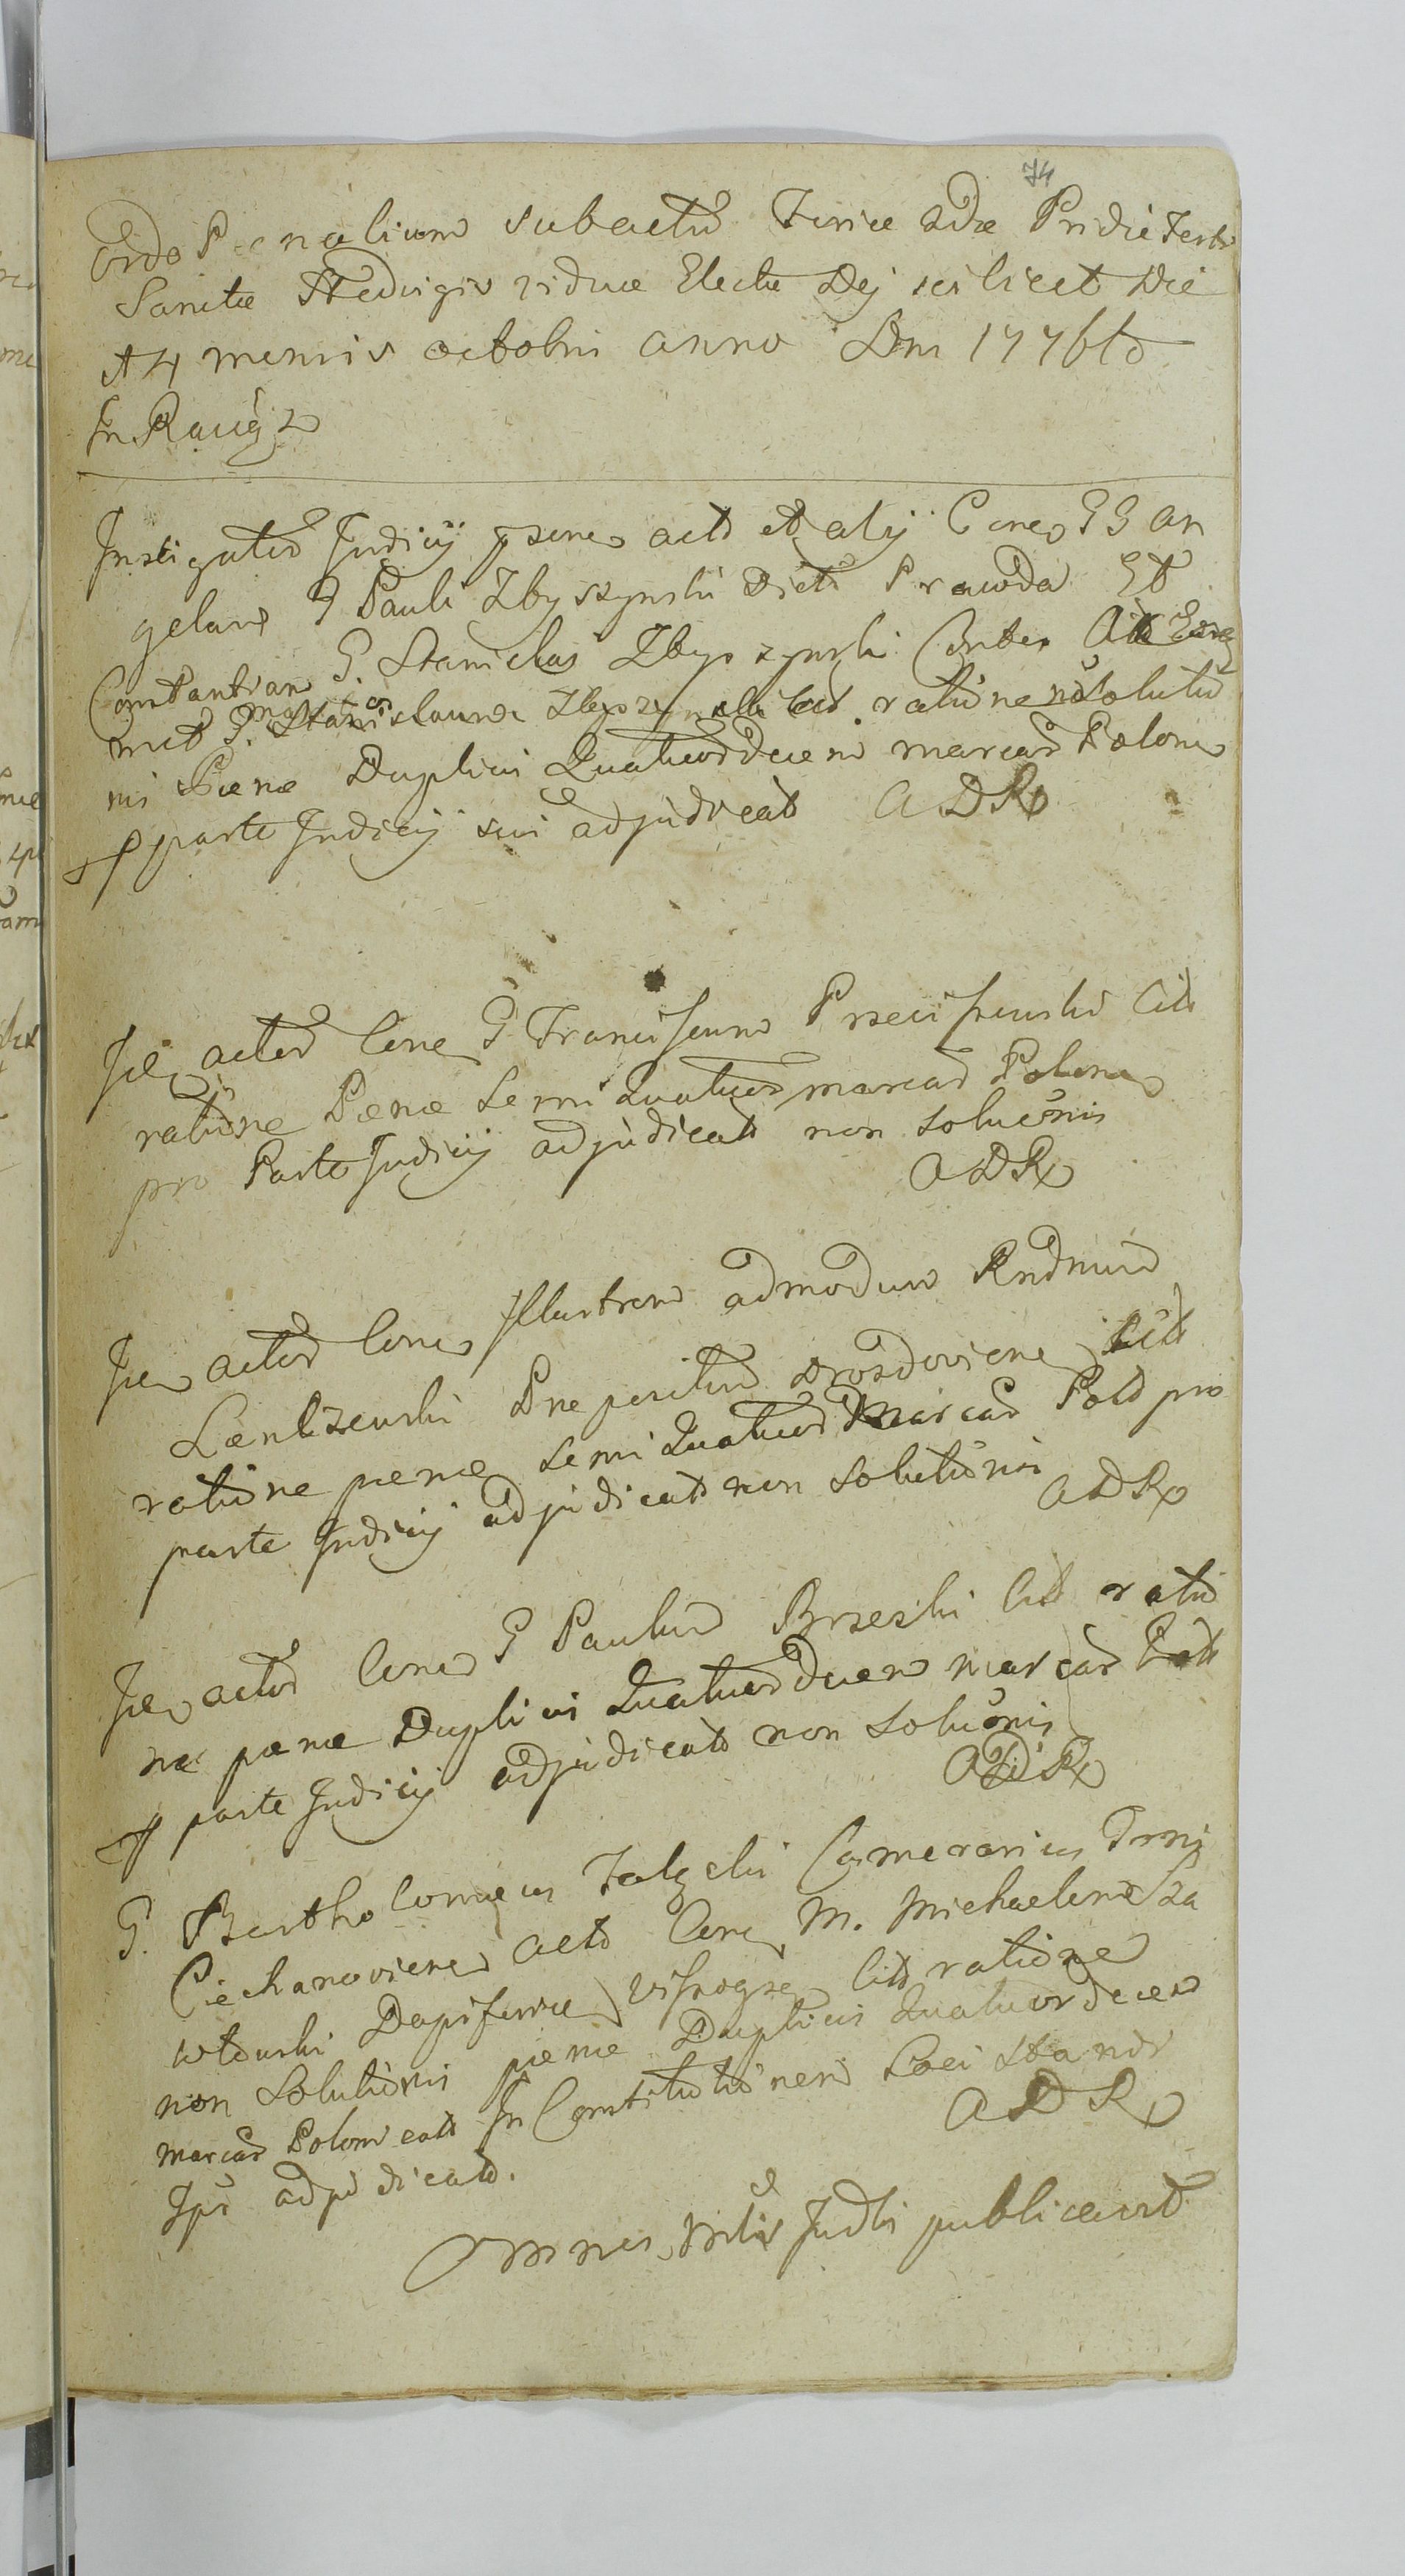 74
Ordo Poenalium subactus Feriae 2dae Pridie Festi
Sanctae Hedvigis viduae Electae Dej scilicet Die
14 mensis octobris anno Dni 1776to
In Raciąz
Instigator Judicij psenes act et alij Cones GG An
gelam G Pauli Zbyszynski Dicti Prawda Et
Constantiam G. Stanislai Zbyszynski Contes
met G. Stanislaum Zbyszynski Cit ratione non Solutio
nis Paenae Duplicis Quatuordecem marcar Polonic
p parte Judicij sui adjudicat ADR
Ide actor Cone G Franciscum Przeciszewski Cit
ratione Paenae Semi Quatuor marcar Polonic
pro Parte Judicij adjudicat non solucionis
ADR
Ide actor Cones Illustrem admodum Rndmum
Lentzewski Prepositum Drozdoviens Cit
ratione paenae Semi Quatuor Marcar Pol pro
parte Judicij adjudicat non solutionis
ADR
Ide actor Cones G Paulum Brzeski Cit ratio
ne paenae Duplicis Quatuordecem marcar
p parte Judicij adjudicat non solucionis
ADR
G. Bartholomaeus Falęcki Camerarius Trnj
Ciechanoviens act Cone M. Michaelem Za
wtowski Dapiferum Visnogr Cit ratione
non Solutionis paenae Duplicis Quatuordecem
marcar Polonicat In Constitutionem Loci standi
Ipsi adjudicat.
ADR
Omnes Mltis Judli publicavit